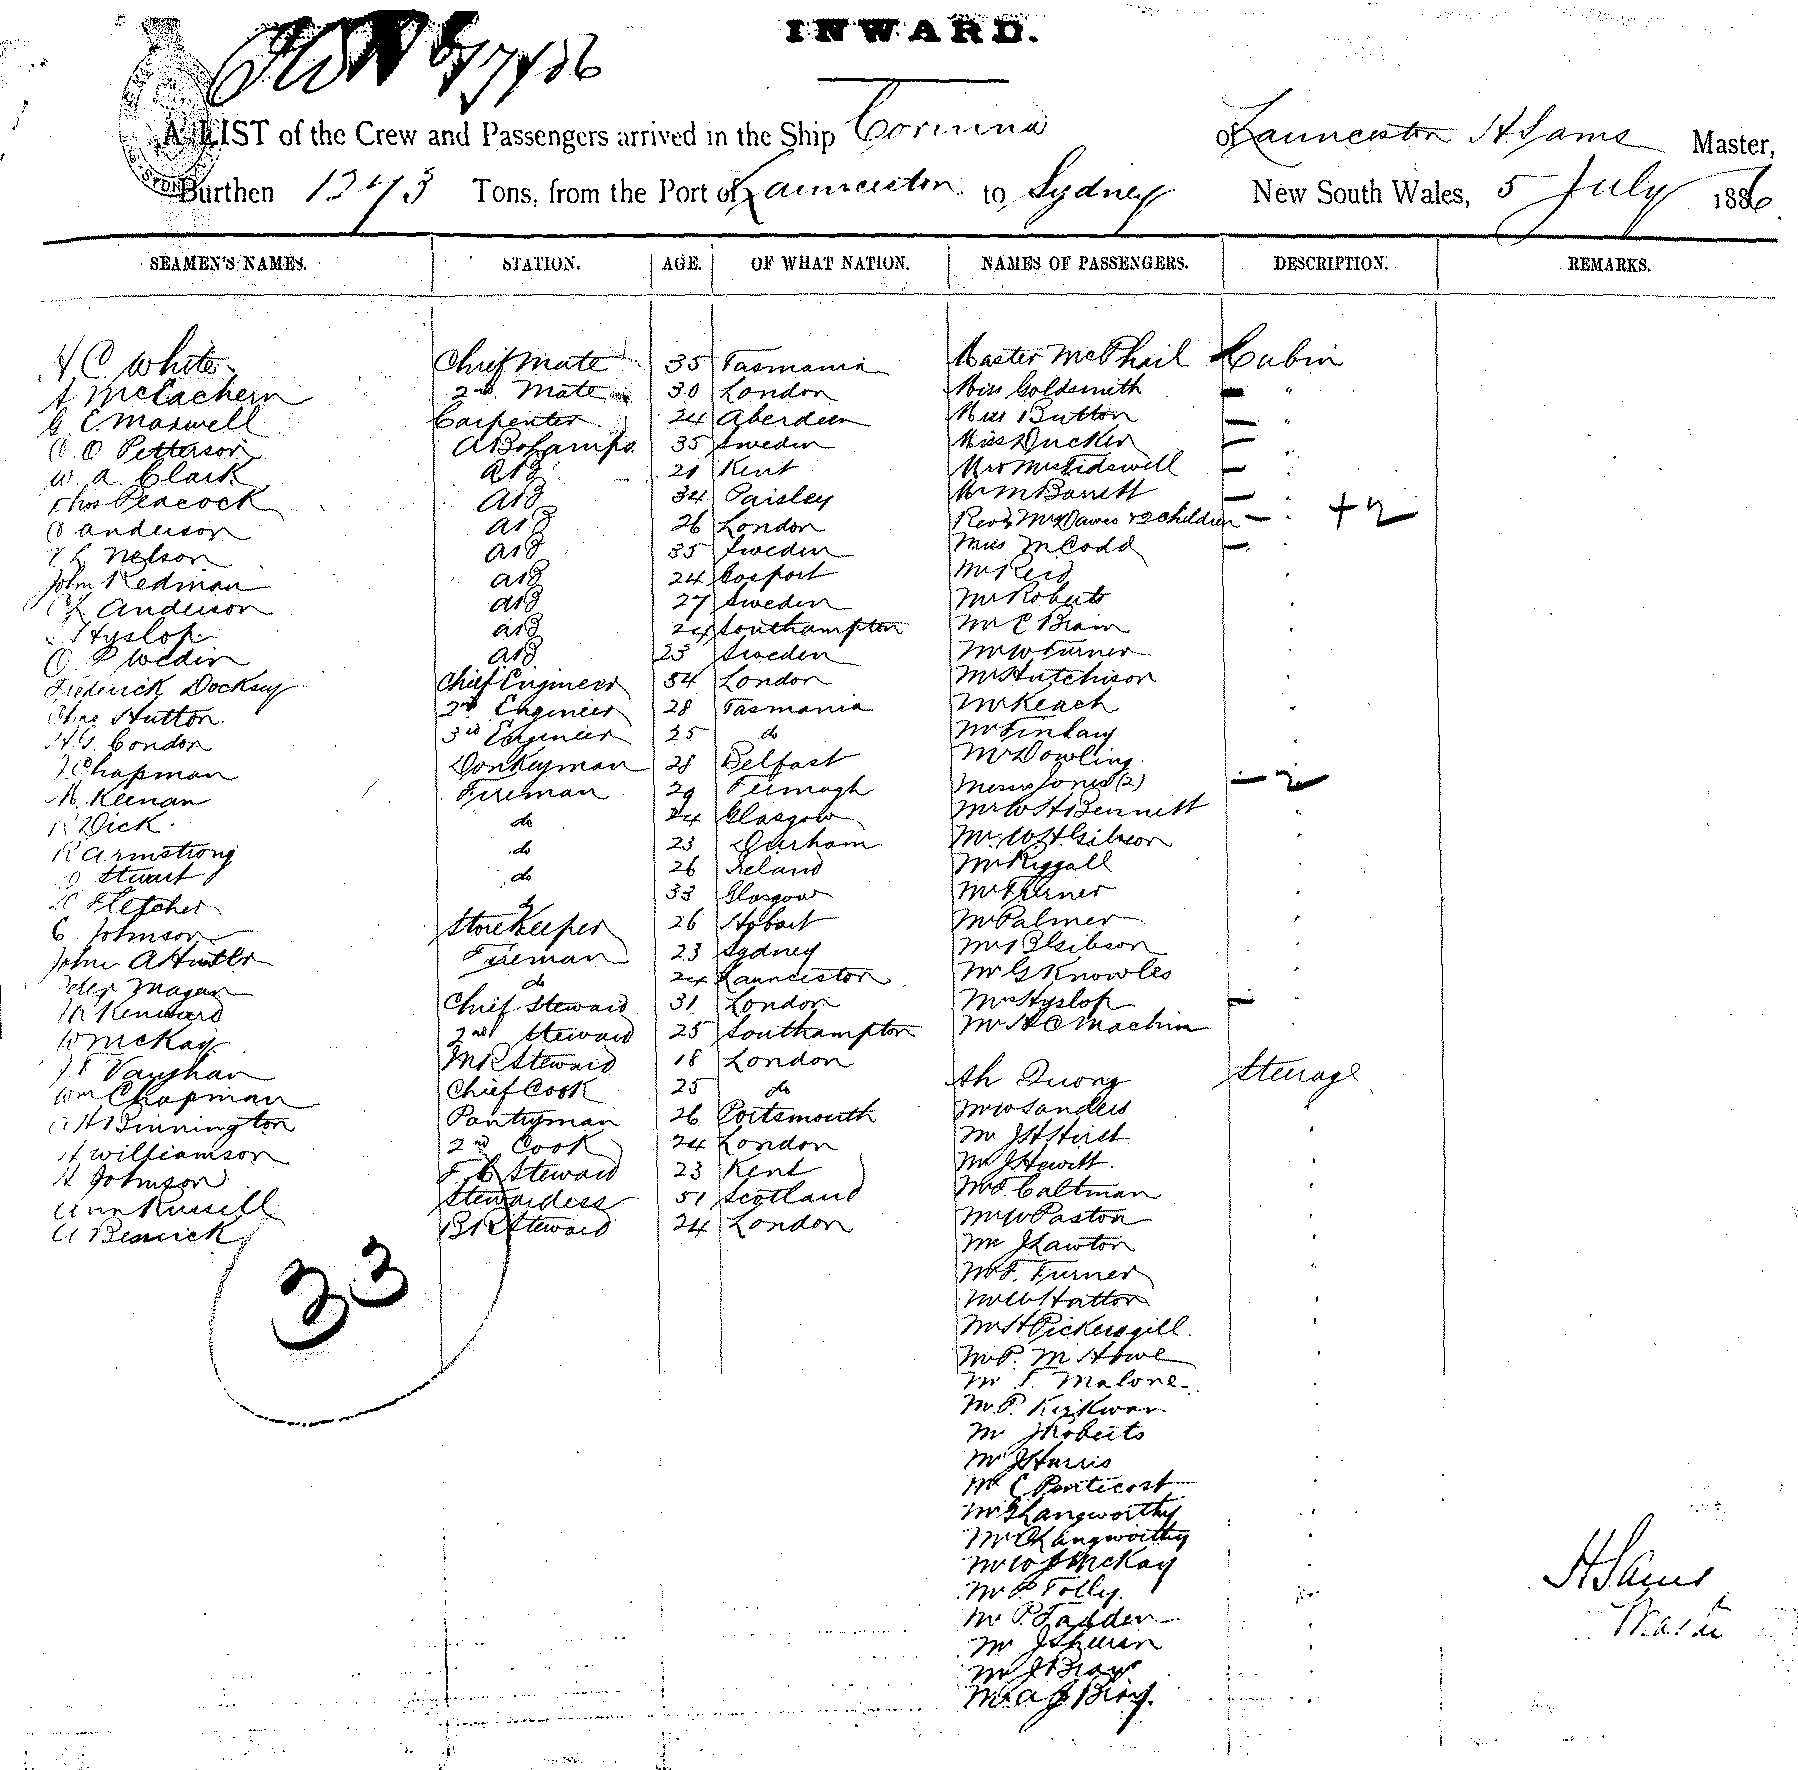 INWARD.
A LIST of the Crew and Passengers arrived in the Ship Corinna of Launceston H Sams Master,
Burthen 1273 Tons, from the Port of Launceston to Sydney New South Wales, 5 July 1886
SEAMEN'S NAMES. STATION. AGE. OF WHAT NATION. NAMES OF PASSENGERS. DESCRIPTION. REMARKS.
H C White Chief Mate 35 Tasmania Master McPhail Cabin
McEachern 2nd Mate 30 London Miss Goldsmith "
C E Maxwell Carpenter 24 Aberdeen Miss Button "
O Petterson AB & Lamps 35 Sweden Miss Ducker "
W. A. Clark AB 21 Kent Mr & Mrs Tidswell "
Thos Peacock AB 34 Paisley Mr M Barrett "
Anderson AB 26 London Rev & Mrs Dawes & 2 children " + 2
Nelson AB 35 Sweden Miss McCodd
John Redman AB 24 Gosport Mr Reid "
Anderson AB 27 Sweden Mr Roberts "
Hyslop AB 24 Southampton Mr C Brain "
O P Wedin AB 23 Sweden Mr W Turner "
Frederick Docksey Chief Engineer 54 London Mr Hutchison "
Chas Hutton 2nd Engineer 28 Tasmania Mr Keach "
H.G. Condon 3rd Engineer 25 do Mr Finlay "
J Chapman Donkeyman 28 Belfast Mr Dowling "
M. Keenan Fireman 29 Fermagh Jones (2) 2
R Dick do 24 Glasgow Mr W H Bennett "
R Armstrong do 23 Durham Mr W H Gibson "
Stuart do 26 Ireland Mr Riggall "
Fletcher do 33 Glasgow Mr Turner "
C. Johnson Storekeeper 26 Hobart Mr Palmer "
John A Fireman 23 Sydney Gibson "
Peter Magan do 24 Launceston Mr G Knowles "
Kennard Chief Steward 31 London Mrs Hyslop "
W McKay 2nd Steward 25 Southampton Mr H C Machin "
Vaughan MR Steward 18 London
Wm Chapman Chief Cook 25 do Ah Quong Steerage
Binnington Pantryman 26 Portsmouth Mr W Sanders "
H Williamson 2nd Cook 24 London Mr J H Hirst "
H Johnson F C Steward 23 Kent Mr J Hewitt. "
Ann Russell Stewardess 51 Scotland Mr F. Caltman "
A Beswick BR Steward 24 London Mr W Paston "
33
Mr J Lawton "
Mr F. Turner "
Mr W Hatton "
Mr H Pickersgill. "
Mr P. M Howe "
Mr T. Malone "
Mr P. Kirkwar "
Mr J Roberts "
Mr J Harris "
Mr C Penticost "
Langworthy "
Langworthy "
Mr W J McKay "
Mr P Tolly "
Mr P. Fadden "
Mr J "
Mr J Bray "
Mr A J Bray. "
H Sams
Master